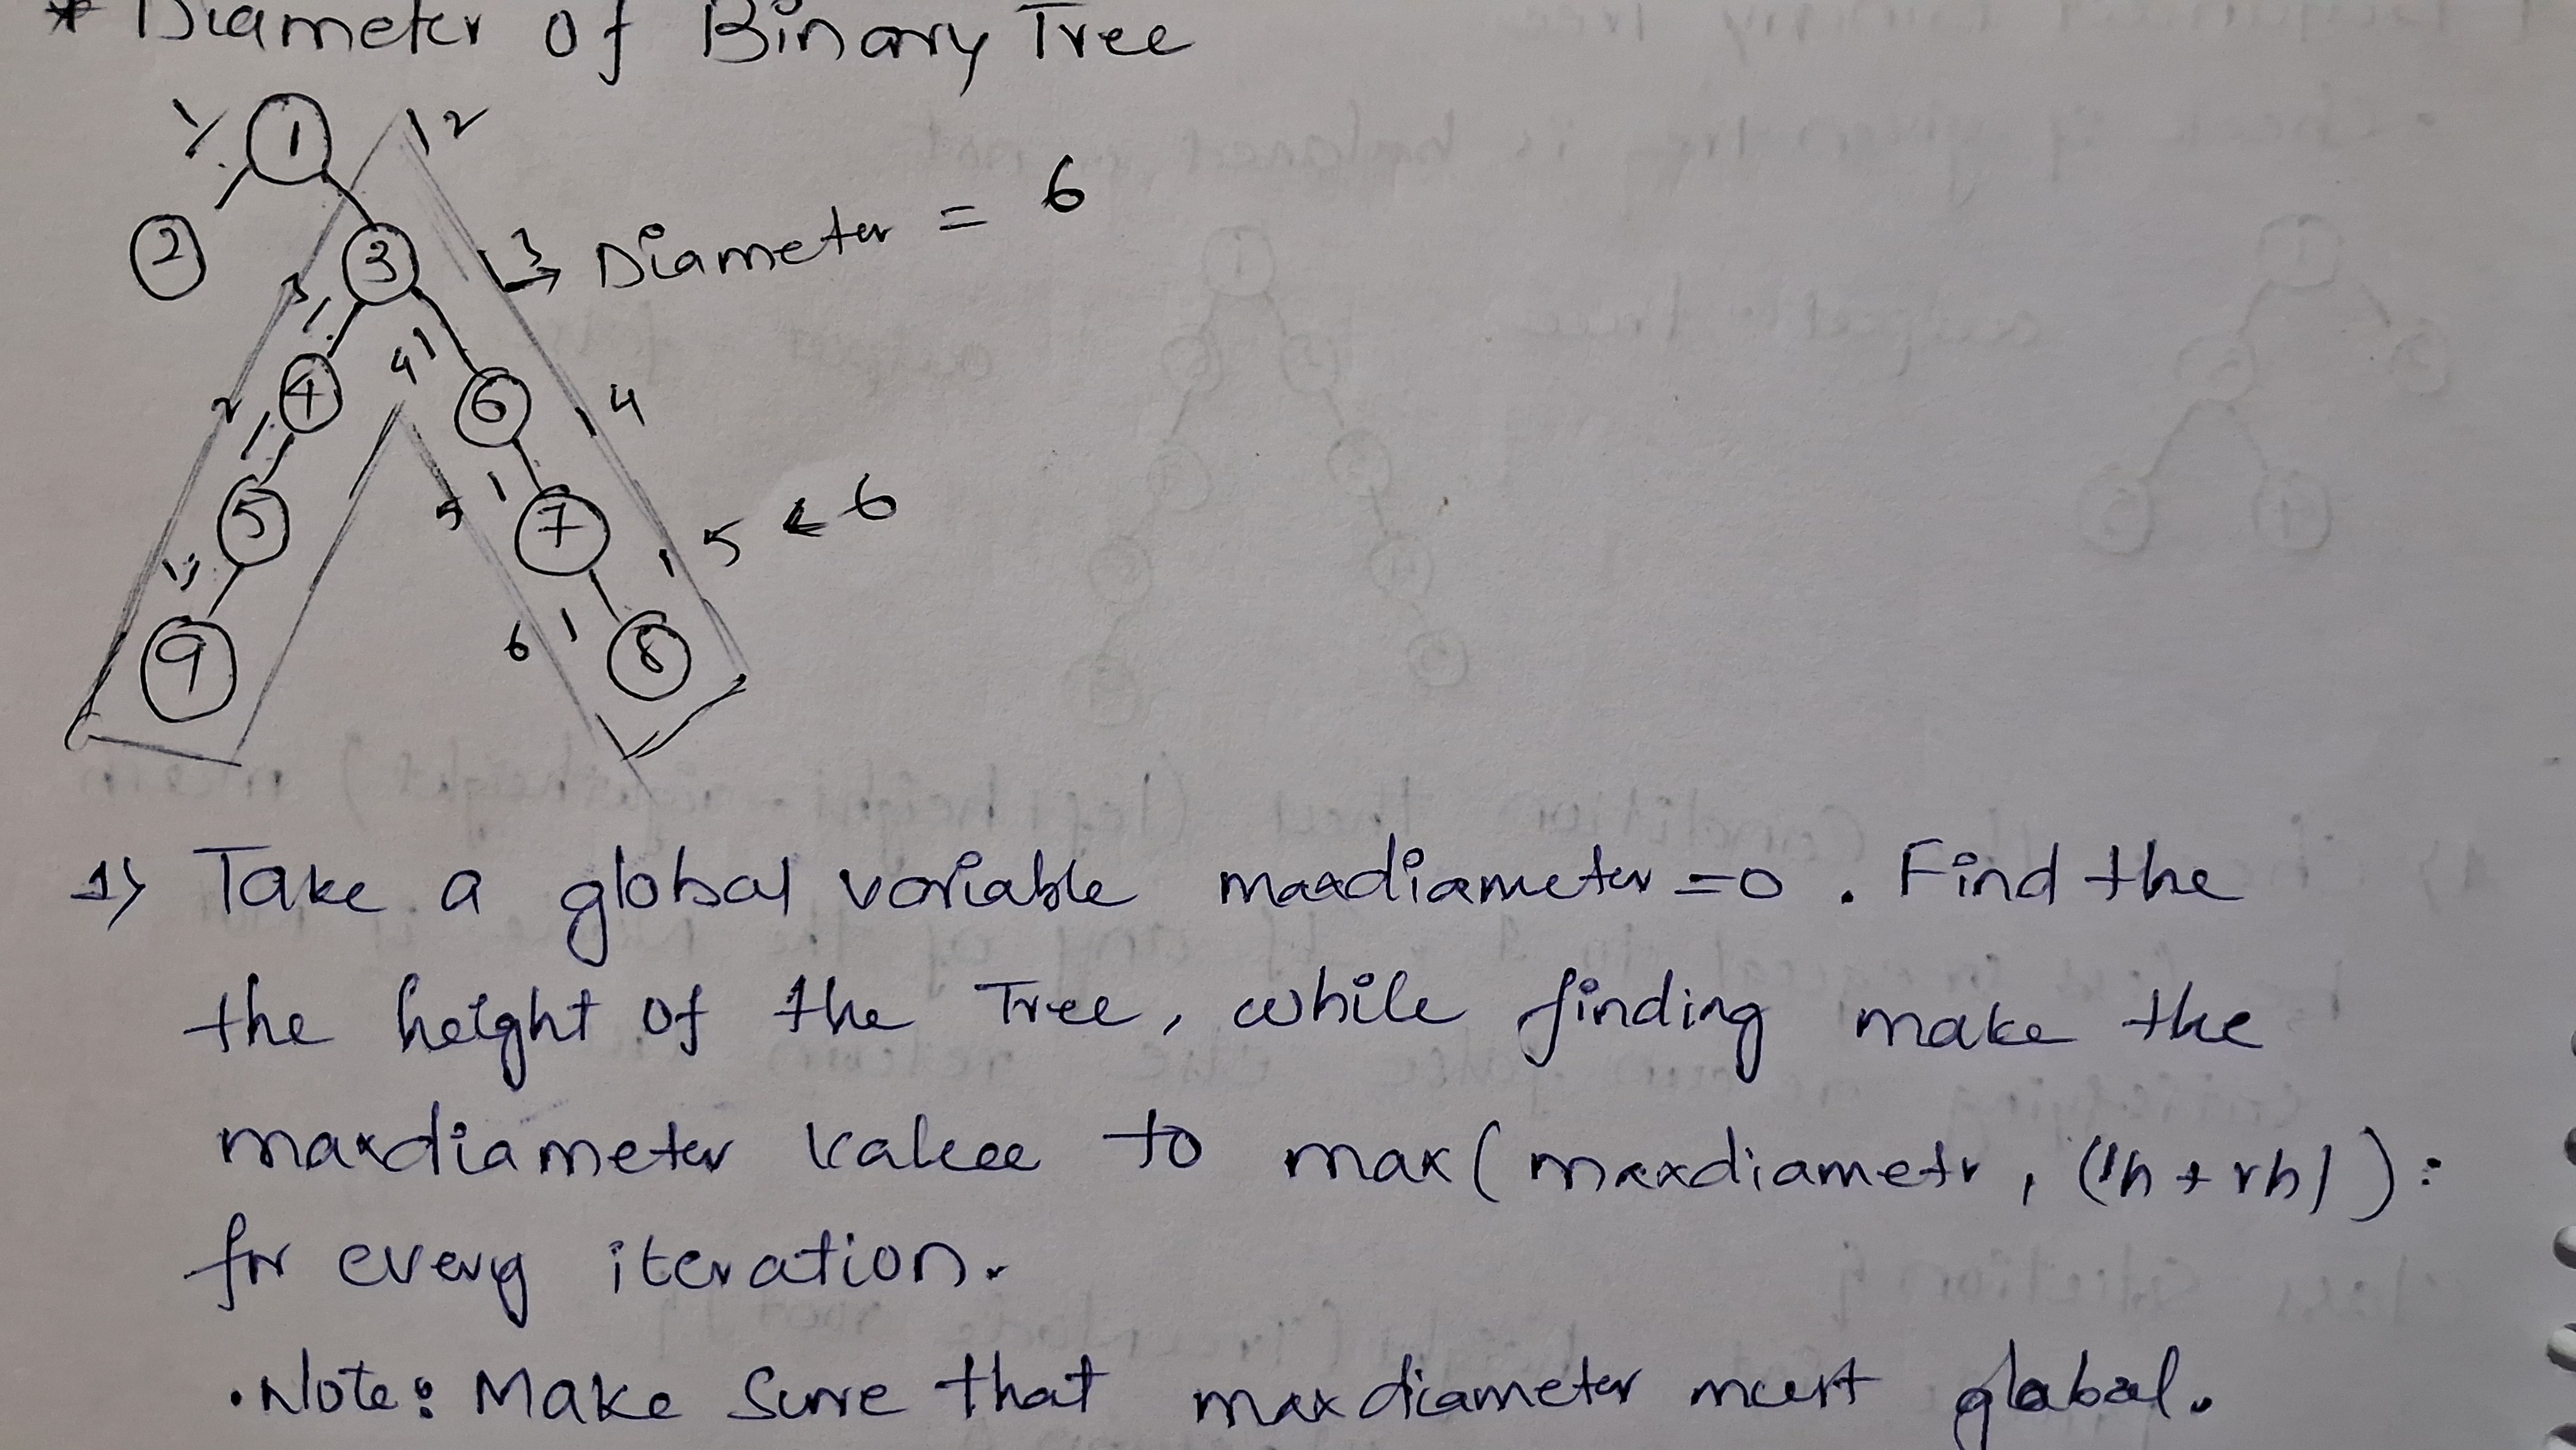 * Diameter of Binary Tree
1
1 2
2
3
↳ Diameter = 6
3 1
4 1
4
6
2 1
5 1
4
5
7
1 1
6 1
5 < 6
9
8
1) Take a global variable maxdiameter = 0 . Find the
the height of the Tree, while finding make the
maxdiameter value to max( maxdiametr, (lh + rh) ):
for every iteration.
• Note: Make Sure that maxdiameter must global.